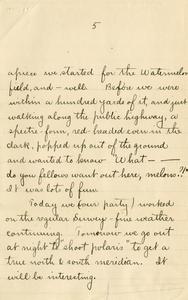 5
apiece we started for the Watermelon
field, and - well. Before we were
within a hundred yards of it, and just
walking along the public highway, a
spectre-form, red-headed even in the
dark, popped up out of the ground
and wanted to know "What — —
do you fellows want out here, melons?"
It was lots of fun.
Today we four (party) worked
on the regular Survey - fine weather
continuing. Tomorrow we go out
at night to "shoot polaris" to get a
true north & south meridian. It
will be interesting.